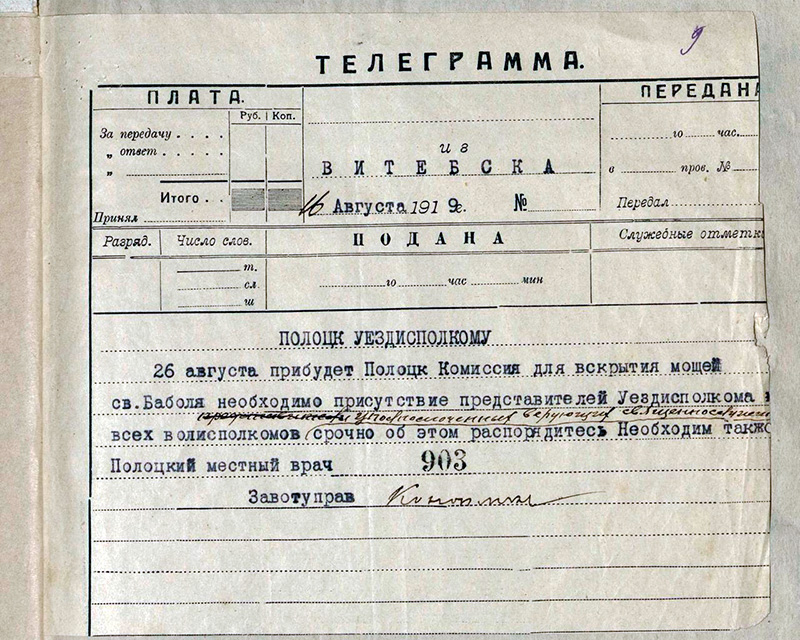 9
ТЕЛЕГРАММА.
ПЛАТА.
Руб. Коп.
За передачу . . . .
„ ответ . . . . .
„
Итого . .
Принял
из
ВИТЕБСКА
16 Августа 1919г. №
ПЕРЕДАНА
го час.
в пров. №
Передал
Разряд.
Число слов.
т.
сл.
ш
ПОДАНА
го час мин
Служебные отметк
ПОЛОЦК УЕЗДИСПОЛКОМУ
26 августа прибудет Полоцк Комиссия для вскрытия мощей
св.Баболя необходимо присутствие представителей Уездисполкома и
уполномоченных верующих священнослужит
всех волисполкомов срочно об этом распорядитесь Необходим также
Полоцкий местный врач 903
Завотуправ